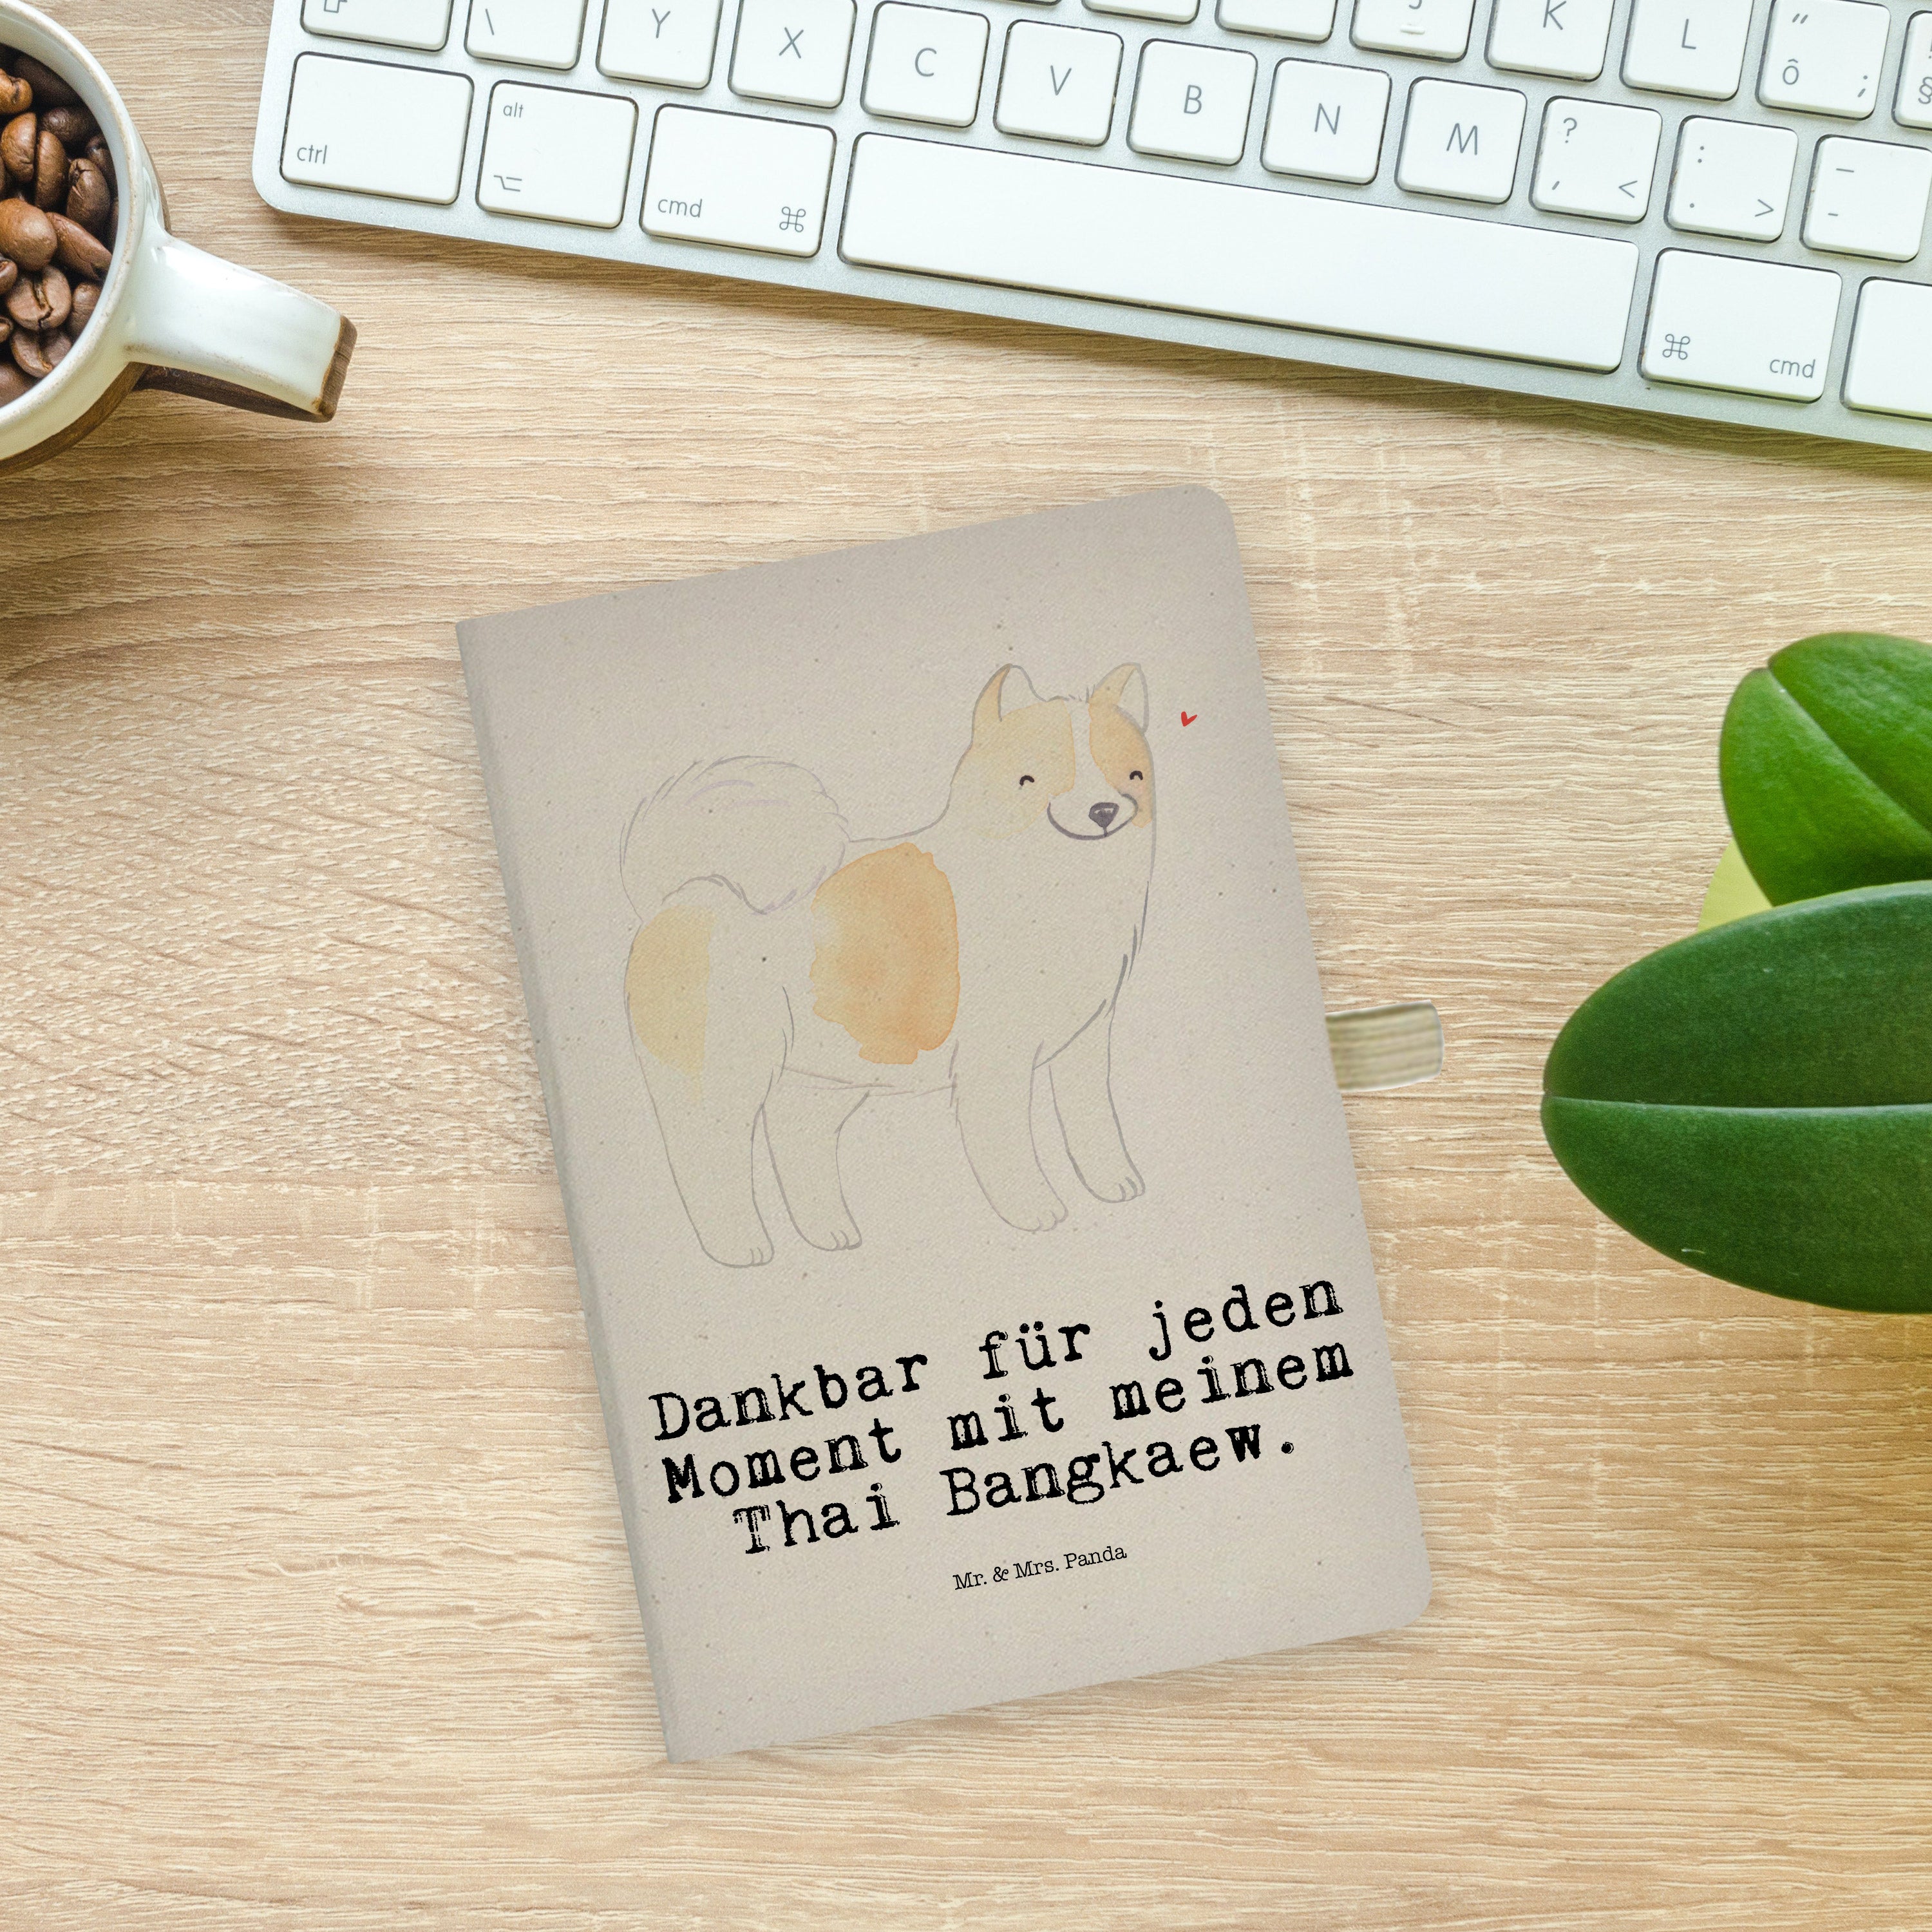 \ Y X C V B N M K L
ctrl alt cmd ⌘
? , < : . > — -
⌘ cmd
Dankbar für jeden
Moment mit meinem
Thai Bangkaew.
Mr. & Mrs. Panda